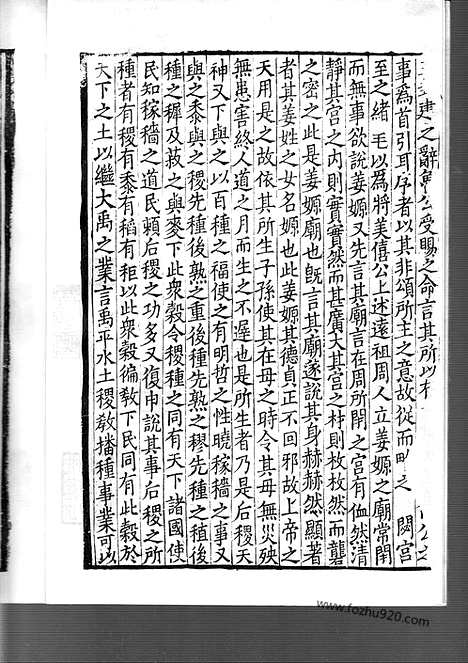 建之辭魯公受賜之命言其所以
事爲首引耳序者以其非頌所主之意故從而略之 閟宮
至之緒 毛以爲將美僖公上述遠祖周人立姜嫄之廟常閉
而無事欲說姜嫄又先言其廟言在周所閉之宮有侐然清
靜其宮之內則實實然而其廣大其宮之材則枚枚然而礱
之密之此是姜嫄廟也旣言其廟遂說其身赫赫然顯著
者其姜姓之女名嫄也此姜嫄其德貞正不回邪故上帝之
天用是之故依其所生子孫使其在母之時令其母無災殃
無患害終人道之月而生之不遲也是所生者乃是后稷天
神又下與之以百種之福使之有明哲之性曉稼穡之事又
與之黍與之稷先種後熟之重後種先熟之穋先種之稙後
種之穉及菽之與麥下此衆穀令稷種之同有天下諸國使
民知稼穡之道民賴后稷之功多又復申說其事后稷之所
種者有稷有黍有稻有秬以此衆穀徧敎下民同有此穀於
天下之土以繼大禹之業言禹平水土稷敎播種事業可以
www.fozhu920.com